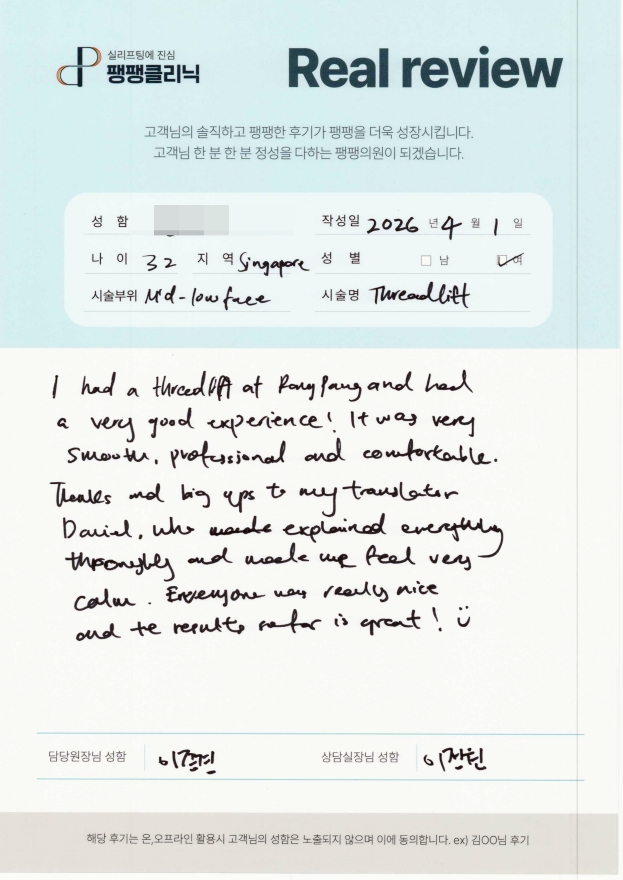 실리프팅에 진심
팽팽클리닉
Real review
고객님의 솔직하고 팽팽한 후기가 팽팽을 더욱 성장시킵니다.
고객님 한 분 한 분 정성을 다하는 팽팽의원이 되겠습니다.
성 함 작성일 2026 년 4 월 1 일
나 이 32 지 역 Singapore 성 별 남 여
시술부위 Mid-low face 시술명 Threadlift
I had a threadlift at PangPang and had
a very good experience! It was very
smooth, professional and comfortable.
Thanks and big ups to my translator
Daniel, who made explained everything
throughly and made me feel very
calm. Everyone was really nice
and te results sofar is great!
담당원장님 성함 상담실장님 성함
해당 후기는 온,오프라인 활용시 고객님의 성함은 노출되지 않으며 이에 동의합니다. ex) 김OO님 후기